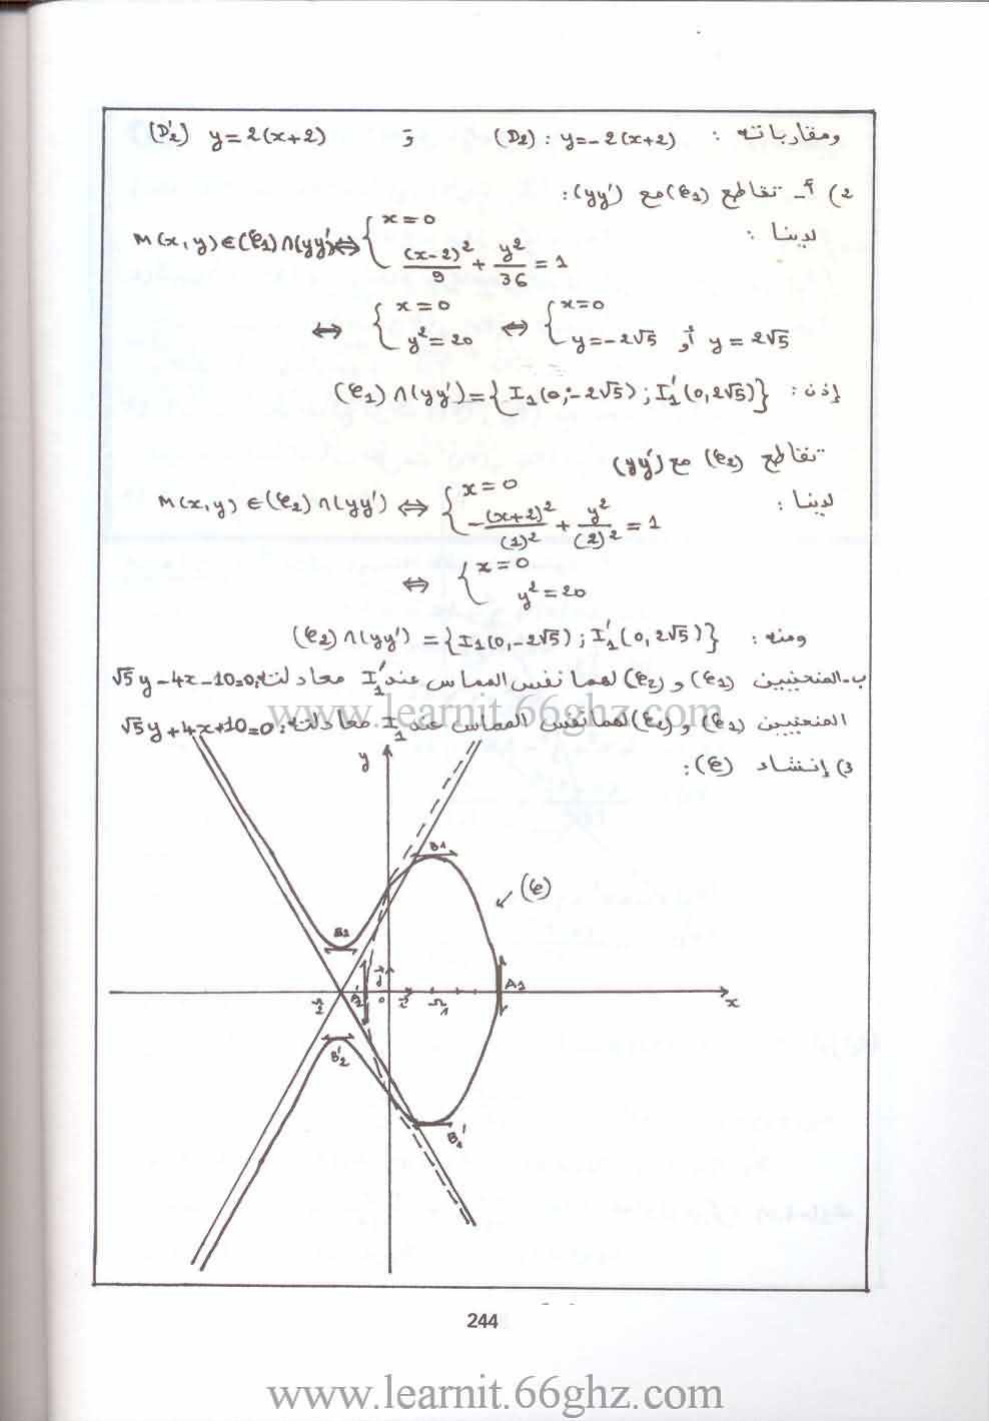 ومقارباته : (D₂) : y=-2(x+2) و (D'₂) y=2(x+2)
2) أ- تقاطع (C₁) مع (yy') :
لدينا :
M(x,y)∈(C₁)∩(yy')⇔ { x=0 ; (x-2)²/9 + y²/36 = 1
⇔ { x=0 ; y²=20 ⇔ { x=0 ; y=-2√5 أو y=2√5
إذن : (C₁)∩(yy')={I₁(0;-2√5);I'₁(0,2√5)}
تقاطع (C₂) مع (yy')
لدينا : M(x,y)∈(C₂)∩(yy') ⇔ { x=0 ; -(x+2)²/(1)² + y²/(2)² = 1
⇔ { x=0 ; y²=20
ومنه : (C₂)∩(yy') ={I₁(0,-2√5);I'₁(0,2√5)}
ب- المنحنيين (C₁) و (C₂) لهما نفس المماس عند I'₁ معادلته: √5y-4x-10=0
المنحنيين (C₁) و (C₂) لهما نفس المماس عند I₁ معادلته: √5y+4x+10=0
www.learnit.66ghz.com
3) إنشاء (C) :
y
B₁
(C)
B₂
j
Ω₂ A'₂ o i Ω₁ A₁ x
B'₂
B₁'
244
www.learnit.66ghz.com